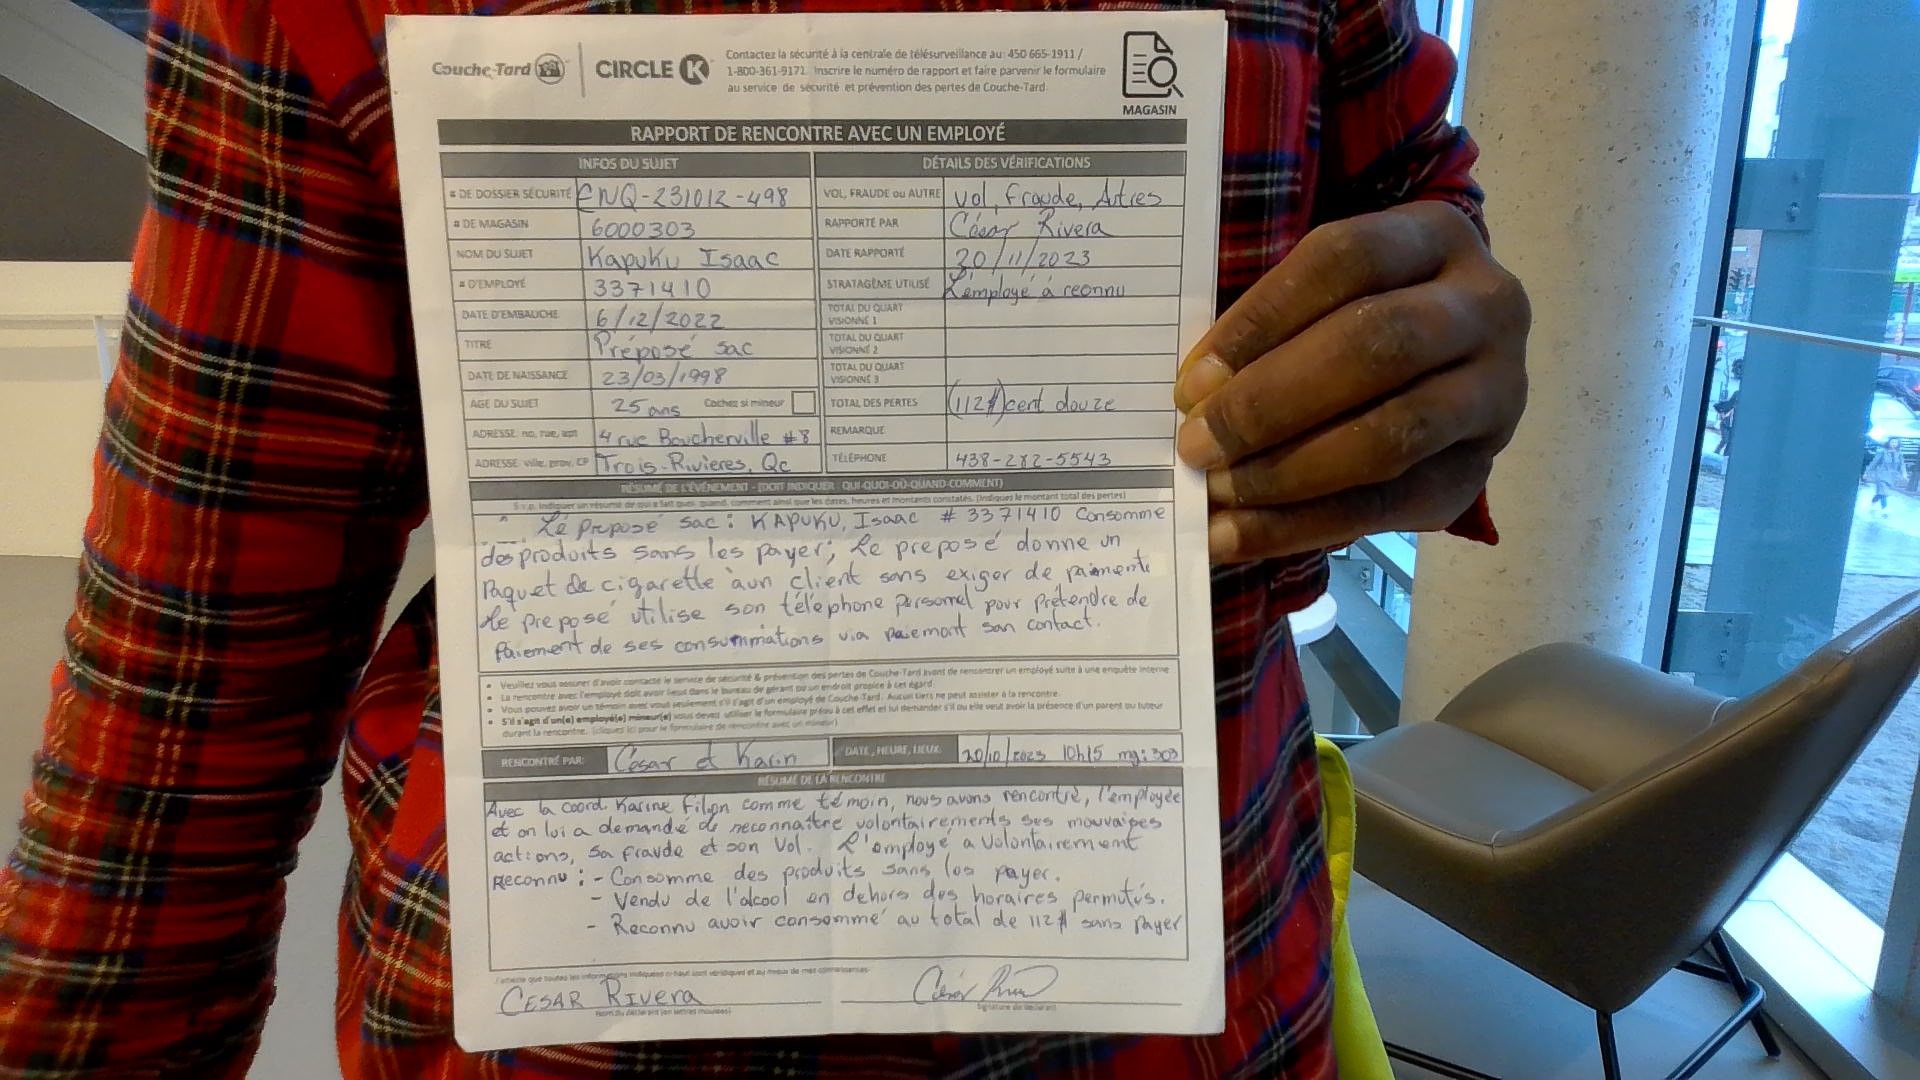 Couche-Tard
CIRCLE K
Contactez la sécurité à la centrale de télésurveillance au: 450 665-1911 /
1-800-361-9172. Inscrire le numéro de rapport et faire parvenir le formulaire
au service de sécurité et prévention des pertes de Couche-Tard.
MAGASIN
RAPPORT DE RENCONTRE AVEC UN EMPLOYÉ
INFOS DU SUJET
# DE DOSSIER SÉCURITÉ ENQ-231012-498
# DE MAGASIN 6000303
NOM DU SUJET Kapuku Isaac
# D'EMPLOYÉ 3371410
DATE D'EMBAUCHE 6/12/2022
TITRE Préposé sac
DATE DE NAISSANCE 23/03/1998
AGE DU SUJET 25 ans Cochez si mineur
ADRESSE no, rue, apt 4 rue Boucherville #8
ADRESSE ville, prov, CP Trois-Rivieres, Qc
DÉTAILS DES VÉRIFICATIONS
VOL, FRAUDE ou AUTRE Vol, Fraude, Autres
RAPPORTÉ PAR César Rivera
DATE RAPPORTÉ 20/11/2023
STRATAGÈME UTILISÉ L'employé a reonnu
TOTAL DU QUART
VISIONNÉ 1
TOTAL DU QUART
VISIONNÉ 2
TOTAL DU QUART
VISIONNÉ 3
TOTAL DES PERTES (112$) cent douze
REMARQUE
TÉLÉPHONE 438-282-5543
RÉSUMÉ DE L'ÉVÉNEMENT - (DOIT INDIQUER QUI-QUOI-OÙ-QUAND-COMMENT)
S.v.p. indiquer un résumé de qui a fait quoi, quand, comment ainsi que les dates, heures et montants constatés. (Indiquez le montant total des pertes)
Le preposé sac: KAPUKU, Isaac # 3371410 Consomme
des produits sans les payer; Le preposé donne un
Paquet de cigarette à un client sans exiger de paiment.
Le preposé utilise son téléphone personel pour prétendre de
Paiement de ses consummations via paiement san contact.
• Veuillez vous assurer d'avoir contacté le service de sécurité & prévention des pertes de Couche-Tard avant de rencontrer un employé suite à une enquête interne
• La rencontre avec l'employé doit avoir lieu dans le bureau de gérant ou un endroit propice à cet égard.
• Vous pouvez avoir un témoin avec vous seulement s'il s'agit d'un employé de Couche-Tard. Aucun tiers ne peut assister à la rencontre.
• S'il s'agit d'un(e) employé(e) mineur(e) vous devez utiliser le formulaire prévu à cet effet et lui demander s'il ou elle veut avoir la présence d'un parent ou tuteur
durant la rencontre. (cliquez ici pour le formulaire de rencontre avec un mineur)
RENCONTRÉ PAR: César et Karin
DATE, HEURE, LIEUX: 20/10/2023 10h15 mg: 303
RÉSUMÉ DE LA RENCONTRE
Avec la coord. Karine Filion comme témoin, nous avons rencontré, l'employée
et on lui a demandé de reconnaître volontairements ses mauvaises
actions, sa fraude et son Vol. L'employé a Volontairement
Reconnu: - Consomme des produits sans les payer.
- Vendu de l'alcool en dehors des horaires permutés.
- Reconnu avoir consommé au total de 112$ sans payer
J'atteste que toutes les informations indiquées ci-haut sont véridiques et au mieux de mes connaissances.
CESAR RIVERA
Nom du déclarant (en lettres moulées)
Signature du déclarant